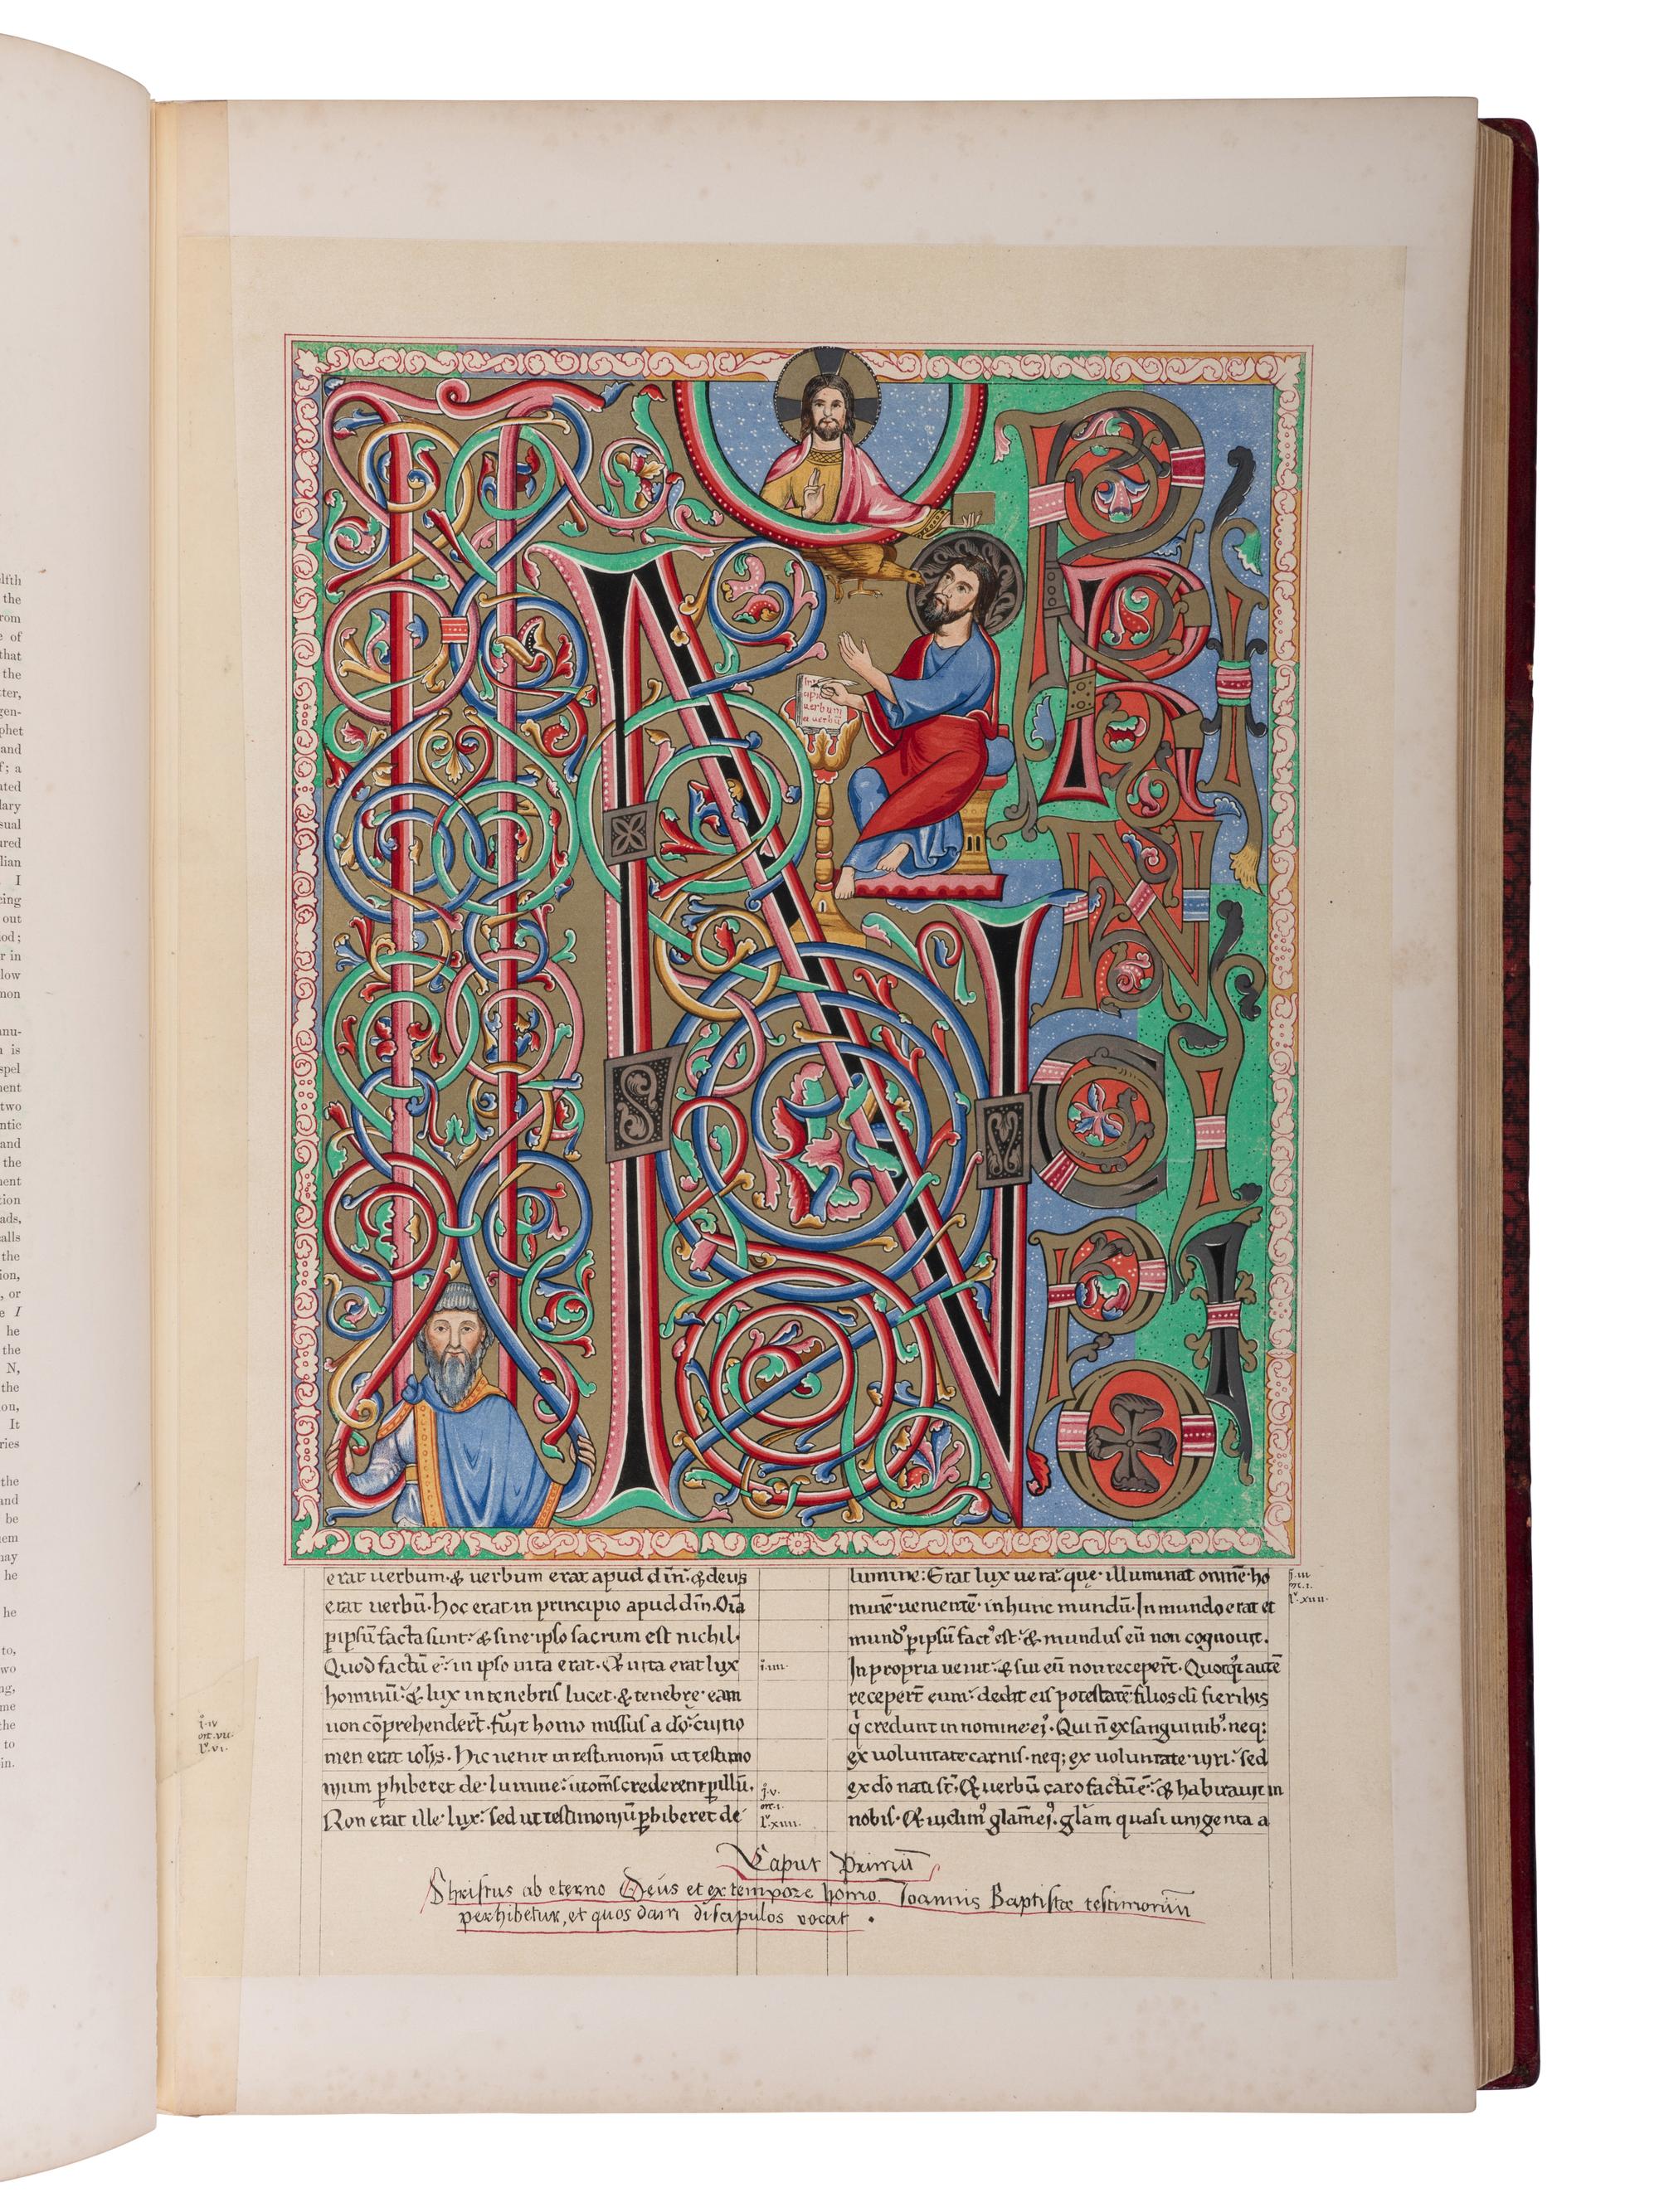 lfth
the
rom
e of
that
the
tter,
gen-
phet
and
f; a
ated
lary
sual
ured
lian
I
cing
out
iod;
r in
low
non
anu-
n is
spel
nent
two
ntic
and
the
nent
tion
ads,
alls
the
ion,
, or
e I
he
the
N,
the
on,
It
ries
the
and
be
hem
may
he
he
to,
two
ng,
me
the
to
in.
IN PRINCIPIO
uerbum
erat uerbum·& uerbum erat apud dm̄:& deus
erat uerbū·hoc erat in principio apud dm̄·Oīa
p ipsū facta sunt:& sine ipso factum est nichil·
Quod factū ē: in ipso uita erat·& uita erat lux
hominū:& lux in tenebris lucet·& tenebrę eam
non cōprehender̄t·fuit homo missus a dō: cui no
men erat iohs̄·hic uenit in testimoniū ut testimo
nium phiberet de lumine: ut om̄s crederent p illū.
Non erat ille lux: sed ut testimoniū phiberet de
lumine: Erat lux uera: quę illuminat omnē ho
minē uenientē in hunc mundū·In mundo erat et
mundꝰ p ipsū factꝰ est:& mundus eū non cognouit.
In propria uenit:& sui eū non receper̄t·Quotqt̄ autē
receper̄t eum: dedit eis potestatē filios dī fieri his
q̇ credunt in nomine eiꝰ·Qui n̄ ex sanguinibꝰ·neq;
ex uoluntate carnis·neq; ex uoluntate uiri: sed
ex dō nati st̄·& uerbū caro factū ē:& habitauit in
nobis·& uidimꝰ glam̄ eiꝰ·glam̄ quasi unigenta a
Caput Primū
Christus ab eterno Deus et ex tempore homo. Ioannis Baptistæ testimoniūn
perhibetur, et quos dam discipulos vocat.